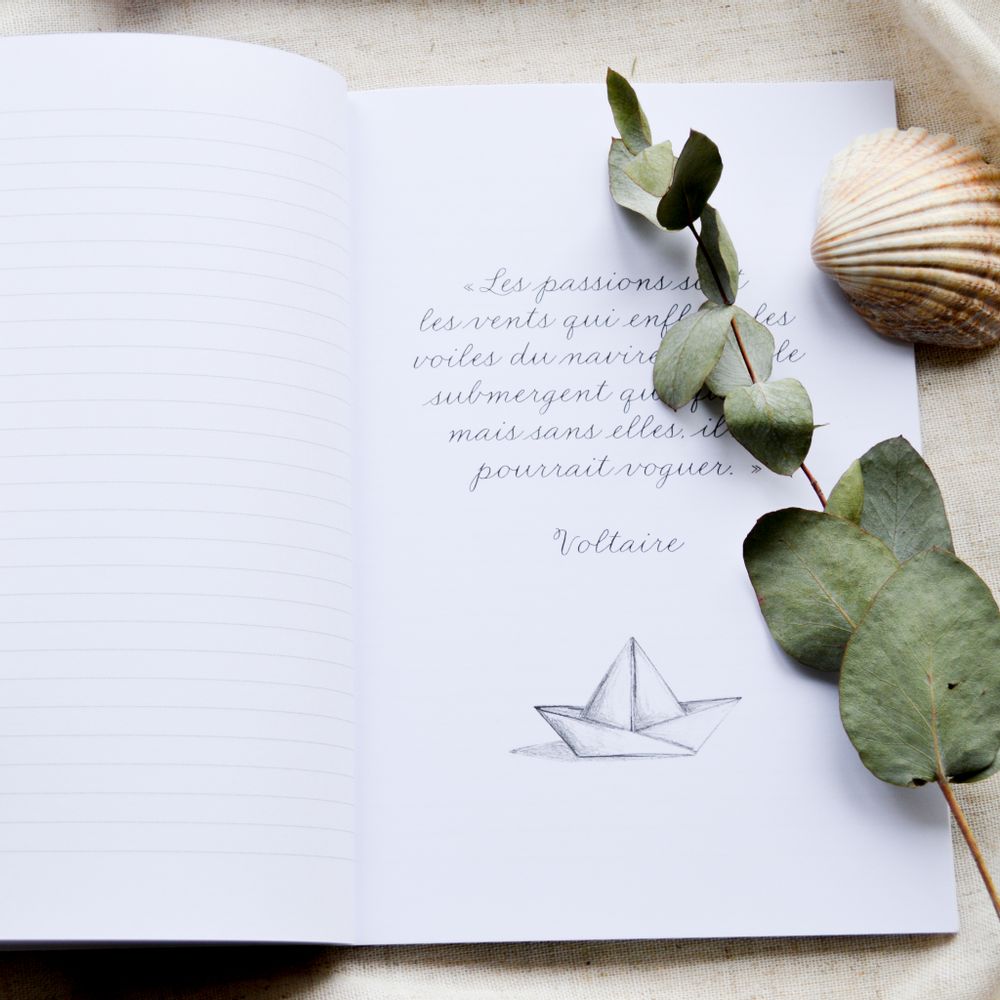 « Les passions sont
les vents qui enflent les
voiles du navire, elles le
submergent quelquefois,
mais sans elles, il ne
pourrait voguer. »
Voltaire